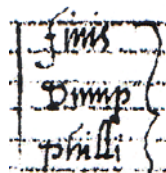 finis
Dimp
philli